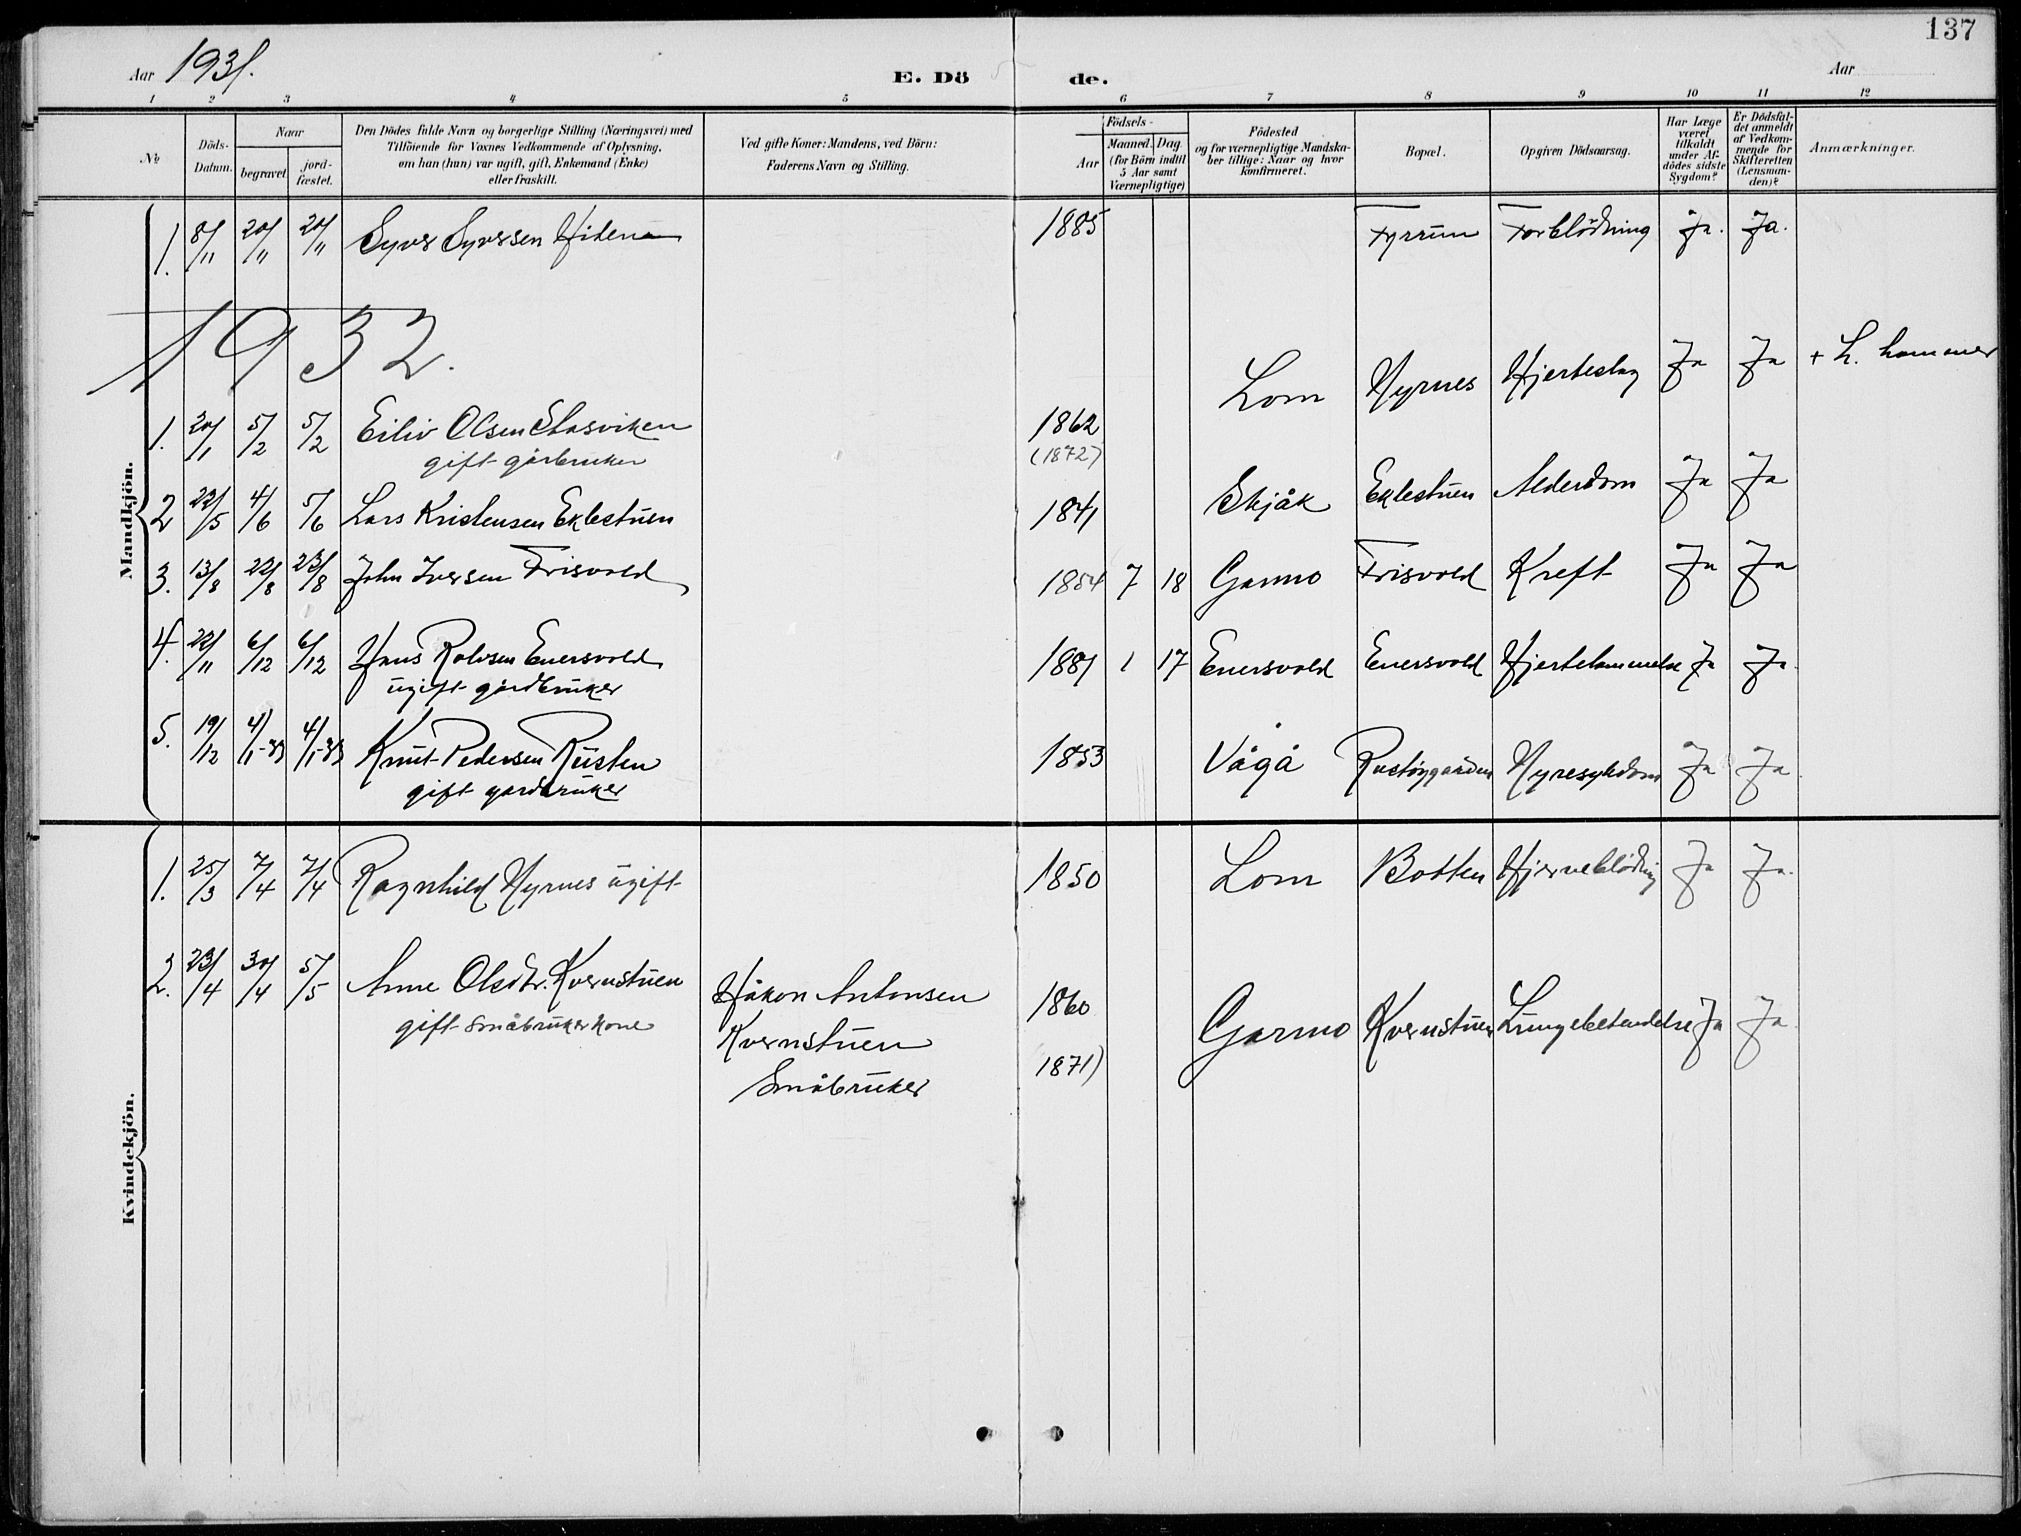 137
Aar 1931.
E. Dö de.
Aar
1 2 3 4 5 6 7 8 9 10 11 12
No
Döds-Datum.
Naar
begravet.
jord-fæstet.
Den Dödes fulde Navn og borgerlige Stilling (Næringsvei) med
Tilföiende for Voxnes Vedkommende af Oplysning,
om han (hun) var ugift, gift, Enkemand (Enke)
eller fraskilt.
Ved gifte Koner: Mandens, ved Börn:
Faderens Navn og Stilling.
Födsels-
Aar
Maaned. Dag
(for Börn indtil
5 Aar samt
Værnepligtige)
Födested
og for værnepligtige Mandska-
ber tillige: Naar og hvor
konfirmeret.
Bopæl.
Opgiven Dödsaarsag.
Har Læge
været
tilkaldt
under Af-
dödes sidste
Sygdom?
Er Dödsfal-
det anmeldt
af Vedkom-
mende for
Skifteretten
(Lensman-
den)?
Anmærkninger.
Mandkjön.
1. 8/11 20/11 20/11 Syver Syversen 1885 Fyrrum Forblödning Ja. Ja.
1932.
1. 20/1 5/2 5/2 Eiliv Olsen 1862 Lom Nyrnes Hjerteslag Ja Ja
gift gårbruker (1872)
2 22/5 4/6 5/6 Lars Kristensen Eklestuen 1841 Skjåk Eklestuen Alderdom Ja Ja
3. 13/8 22/8 23/8 John Iversen Frisvold 1854 7 18 Garmo Frisvold Kreft Ja Ja
4. 22/11 6/12 6/12 Hans Rolvsen Enersvold 1881 1 17 Enersvold Enersvold Hjertelammelse Ja Ja.
ugift gårdbruker
5. 19/12 4/1-33 4/1-33 Knut Pedersen Rusten 1853 Vågå Nyresykdom Ja Ja.
gift gardbruker
Kvindekjön.
1. 25/3 7/4 7/4 Ragnhild Nyrnes ugift 1850 Lom Botten Hjerneblödning Ja Ja.
2. 23/4 30/4 5/5 Anne Olsdtr. Kvernstuen Håkon Antonsen 1860 Garmo Kvernstuen Lungebetendelse Ja Ja.
gift småbrukerkone Kvernstuen
1871)
Småbruker